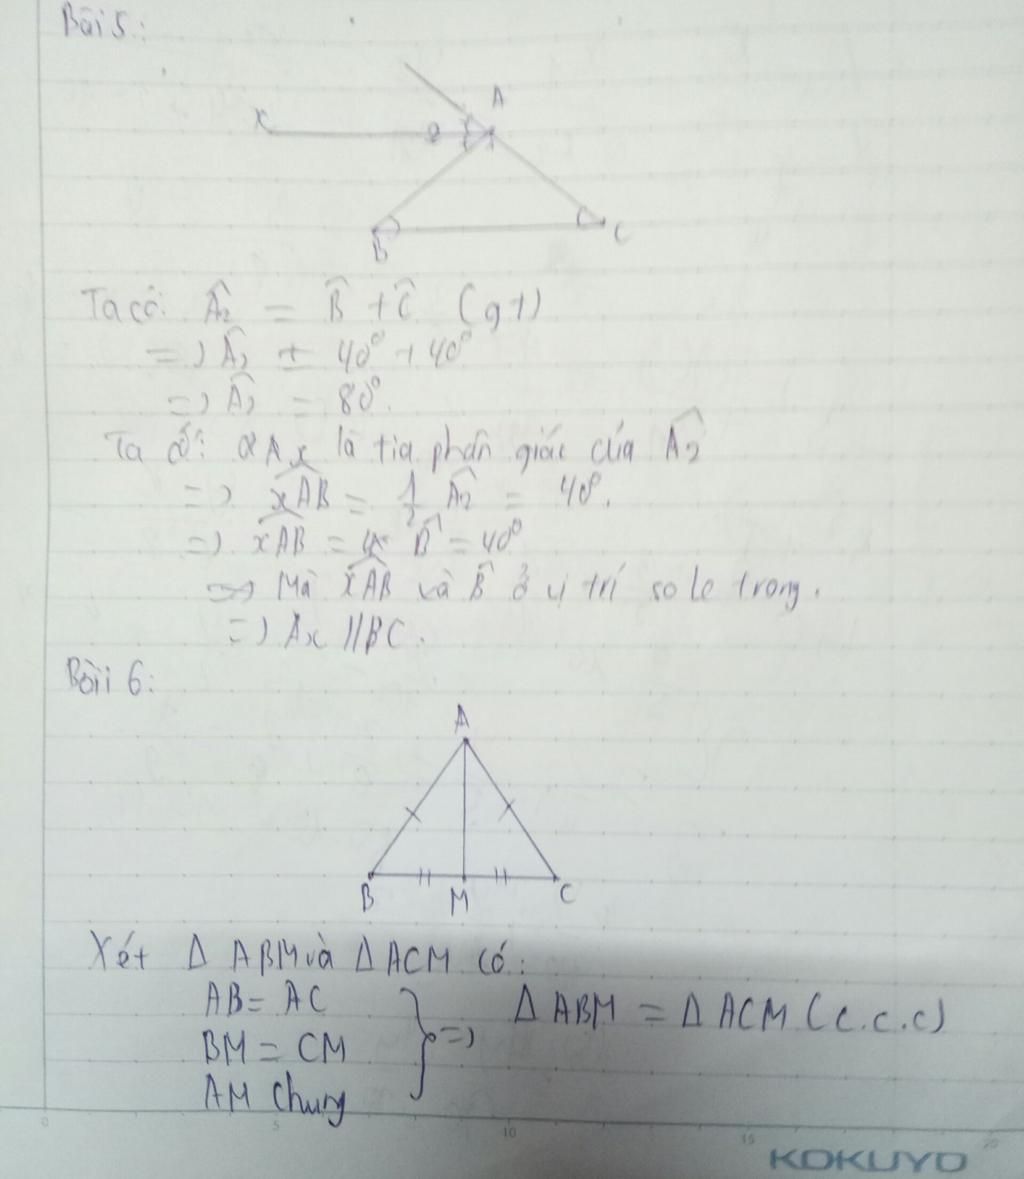 Bài 5:
A
x
2
B
C
Ta có: Â₂ = B̂ + Ĉ (gt)
=) Â₂ = 40° + 40°
=) Â₂ = 80°.
Ta có: Ax là tia phân giác của Â₂
=) xAB = 1/2 Â₂ = 40°.
=) xAB = B̂ = 40°
Mà xAB và B̂ ở vị trí so le trong.
=) Ax // BC.
Bài 6:
A
B M C
Xét Δ ABM và Δ ACM có:
AB = AC
BM = CM
AM chung
=) Δ ABM = Δ ACM (c.c.c)
0 5 10 15 20
KOKUYO